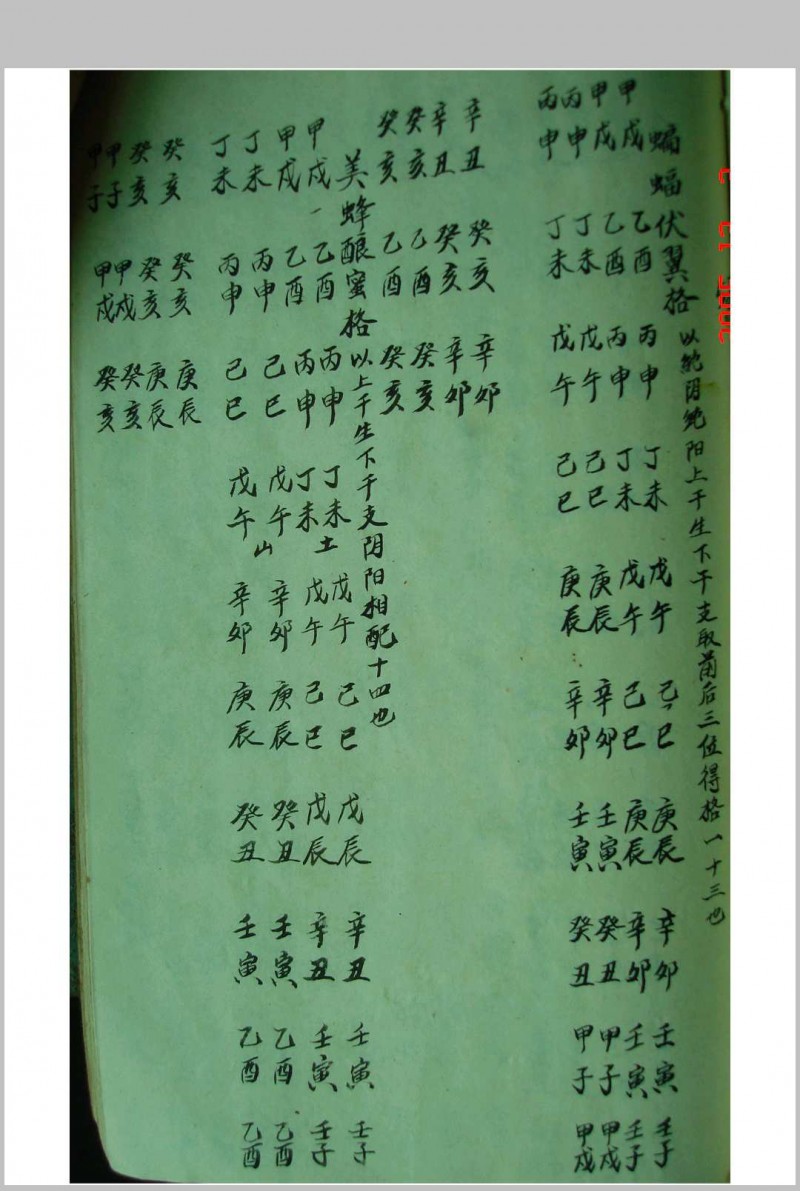 蝙蝠伏翼格 以纯阴纯阳上干生下干支取前后三位得格一十三也
甲戌 乙酉 丙申 丁未 戊午 己巳 庚辰 辛卯 壬寅 壬子
甲戌 乙酉 丙申 丁未 戊午 己巳 庚辰 辛卯 壬寅 壬子
丙申 丁未 戊午 己巳 庚辰 辛卯 壬寅 癸丑 甲子 甲戌
丙申 丁未 戊午 己巳 庚辰 辛卯 壬寅 癸丑 甲子 甲戌
辛丑 癸亥 辛卯
辛丑 癸亥 辛卯
癸亥 乙酉 癸亥
癸亥 乙酉 癸亥
美蜂酿蜜格 以上干生下干支阴阳相配十四也
甲戌 乙酉 丙申 丁未 戊午 己巳 戊辰 辛丑 壬寅 壬子
土
甲戌 乙酉 丙申 丁未 戊午 己巳 戊辰 辛丑 壬寅 壬子
丁未 丙申 己巳 戊午 辛卯 庚辰 癸丑 壬寅 乙酉 乙酉
山
丁未 丙申 己巳 戊午 辛卯 庚辰 癸丑 壬寅 乙酉 乙酉
癸亥 癸亥 庚辰
癸亥 癸亥 庚辰
甲子 甲戌 癸亥
甲子 甲戌 癸亥